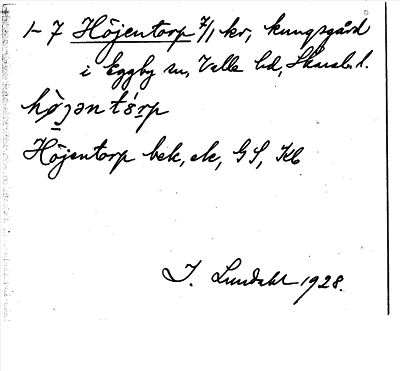 1-7 Höjentorp 7/1 kr, kungsgård
i Eggby sn, Valle hd, Skarab. l.
hö̀jəntórp
Höjentorp bek, ek, GS, Kb
I. Lundahl 1928.